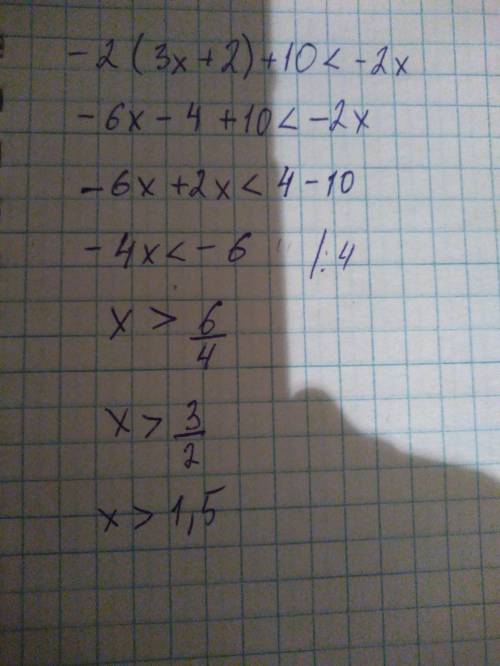 -2(3x+2)+10<-2x
-6x-4+10<-2x
-6x+2x<4-10
-4x<-6 /:4
x > 6/4
x > 3/2
x > 1,5